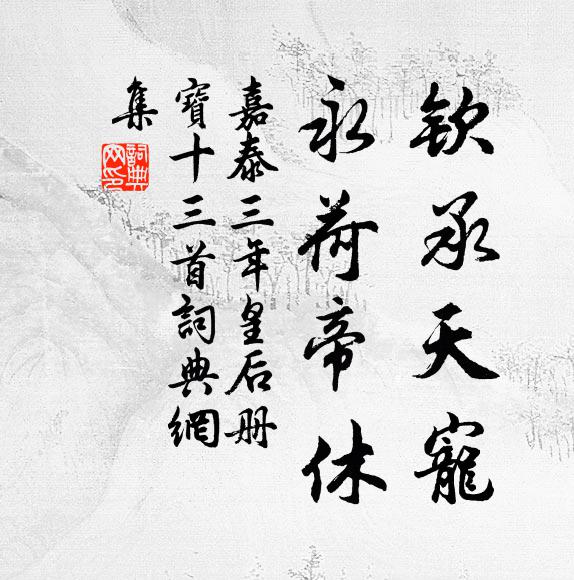 欽承天寵
永荷帝休
嘉泰三年皇后册
寶十三首詞典網
集
詞典網印